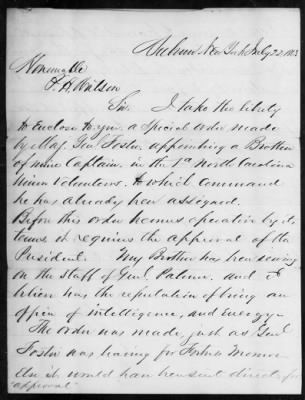 Auburn, New York July 22, 1863
Honorable
P. H. Watson
Sir. I take the liberty
to enclose to you, a Special Order made
by Maj. Genl Foster, appointing a Brother
of mine Captain in the 1st North Carolina
Union Volunteers, to which command
he has already been assigned.
Before this order becomes operative by its
terms it requires the approval of the
President. My Brother has been serving
on the staff of Genl Palmer, and I
believe has the reputation of being an
officer of intelligence, and energy.
The order was made, just as Genl
Foster was leaving for Fortress Monroe
Else it would have been sent direct for
"approval"